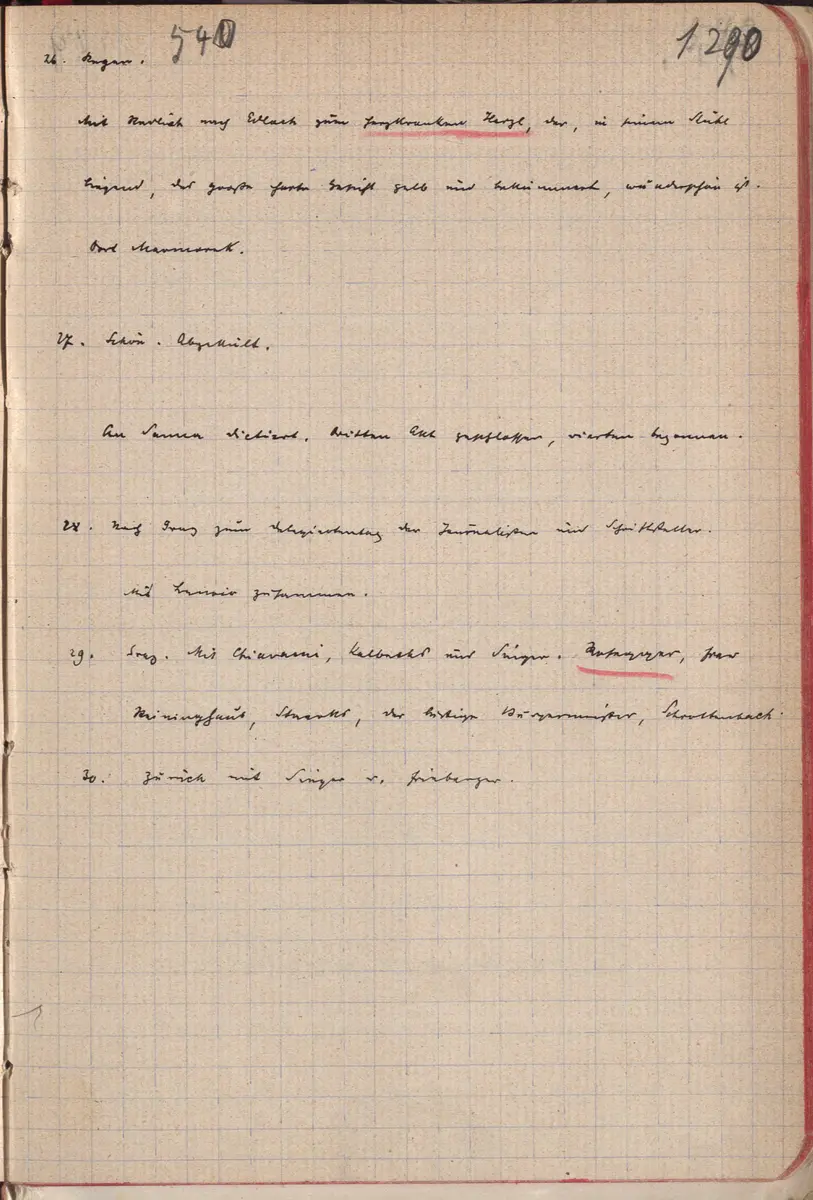 540
1290
26. Regen.
Mit Redlich nach Edlach zum herzkranken Herzl, der, in seinem Stuhl
liegend, das große harte Gesicht gelb und bekümmert, wunderschön ist.
Dort Marmorek.
27. Schön. Abgekühlt.
An Samca dictiert. Dritten Akt geschlossen, vierten begonnen.
28. Nach Graz zum Delegiertentag der Journalisten und Schriftsteller.
Mit zusammen.
29. Graz. Mit Chiavacci, Kalbecks und Singer. Rosegger, Frau
Reininghaus, der hiesige Bürgermeister, Schrottenbach.
30. Zurück mit Singer u.